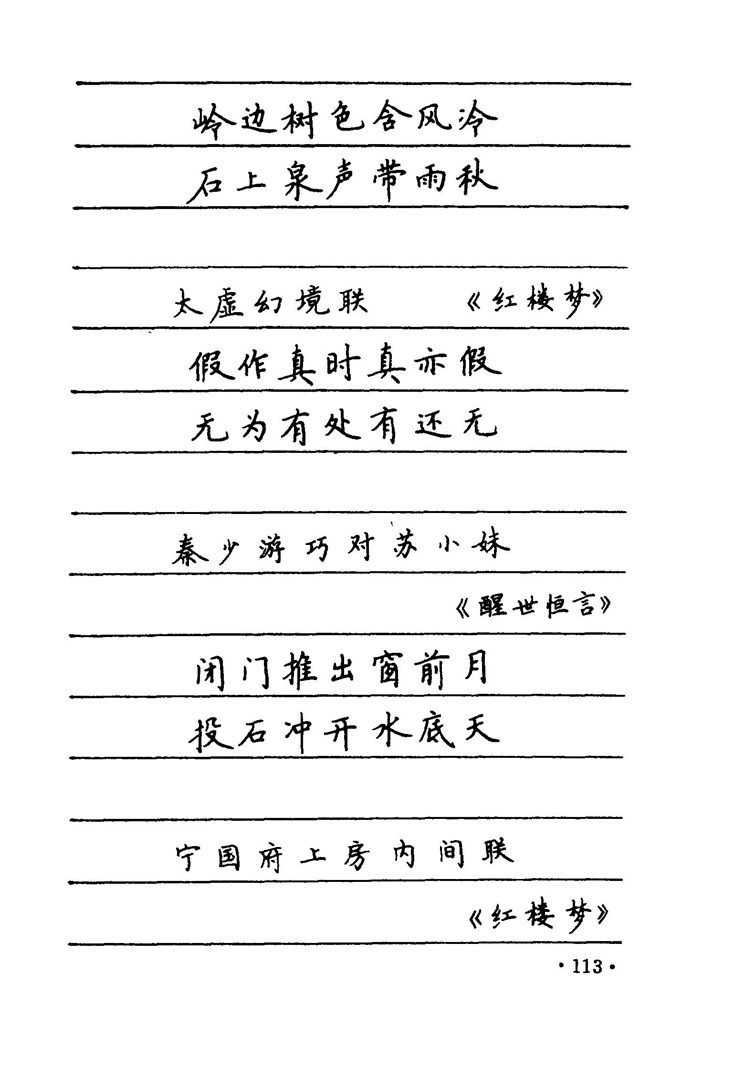 岭边树色含风冷
石上泉声带雨秋
太虚幻境联 《红楼梦》
假作真时真亦假
无为有处有还无
秦少游巧对苏小妹
《醒世恒言》
闭门推出窗前月
投石冲开水底天
宁国府上房内间联
《红楼梦》
·113·